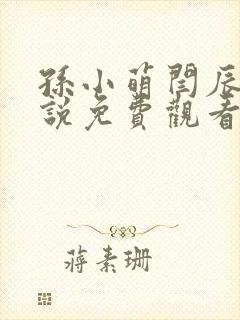 孫小萌閆辰
說免費觀看
蔣素珊